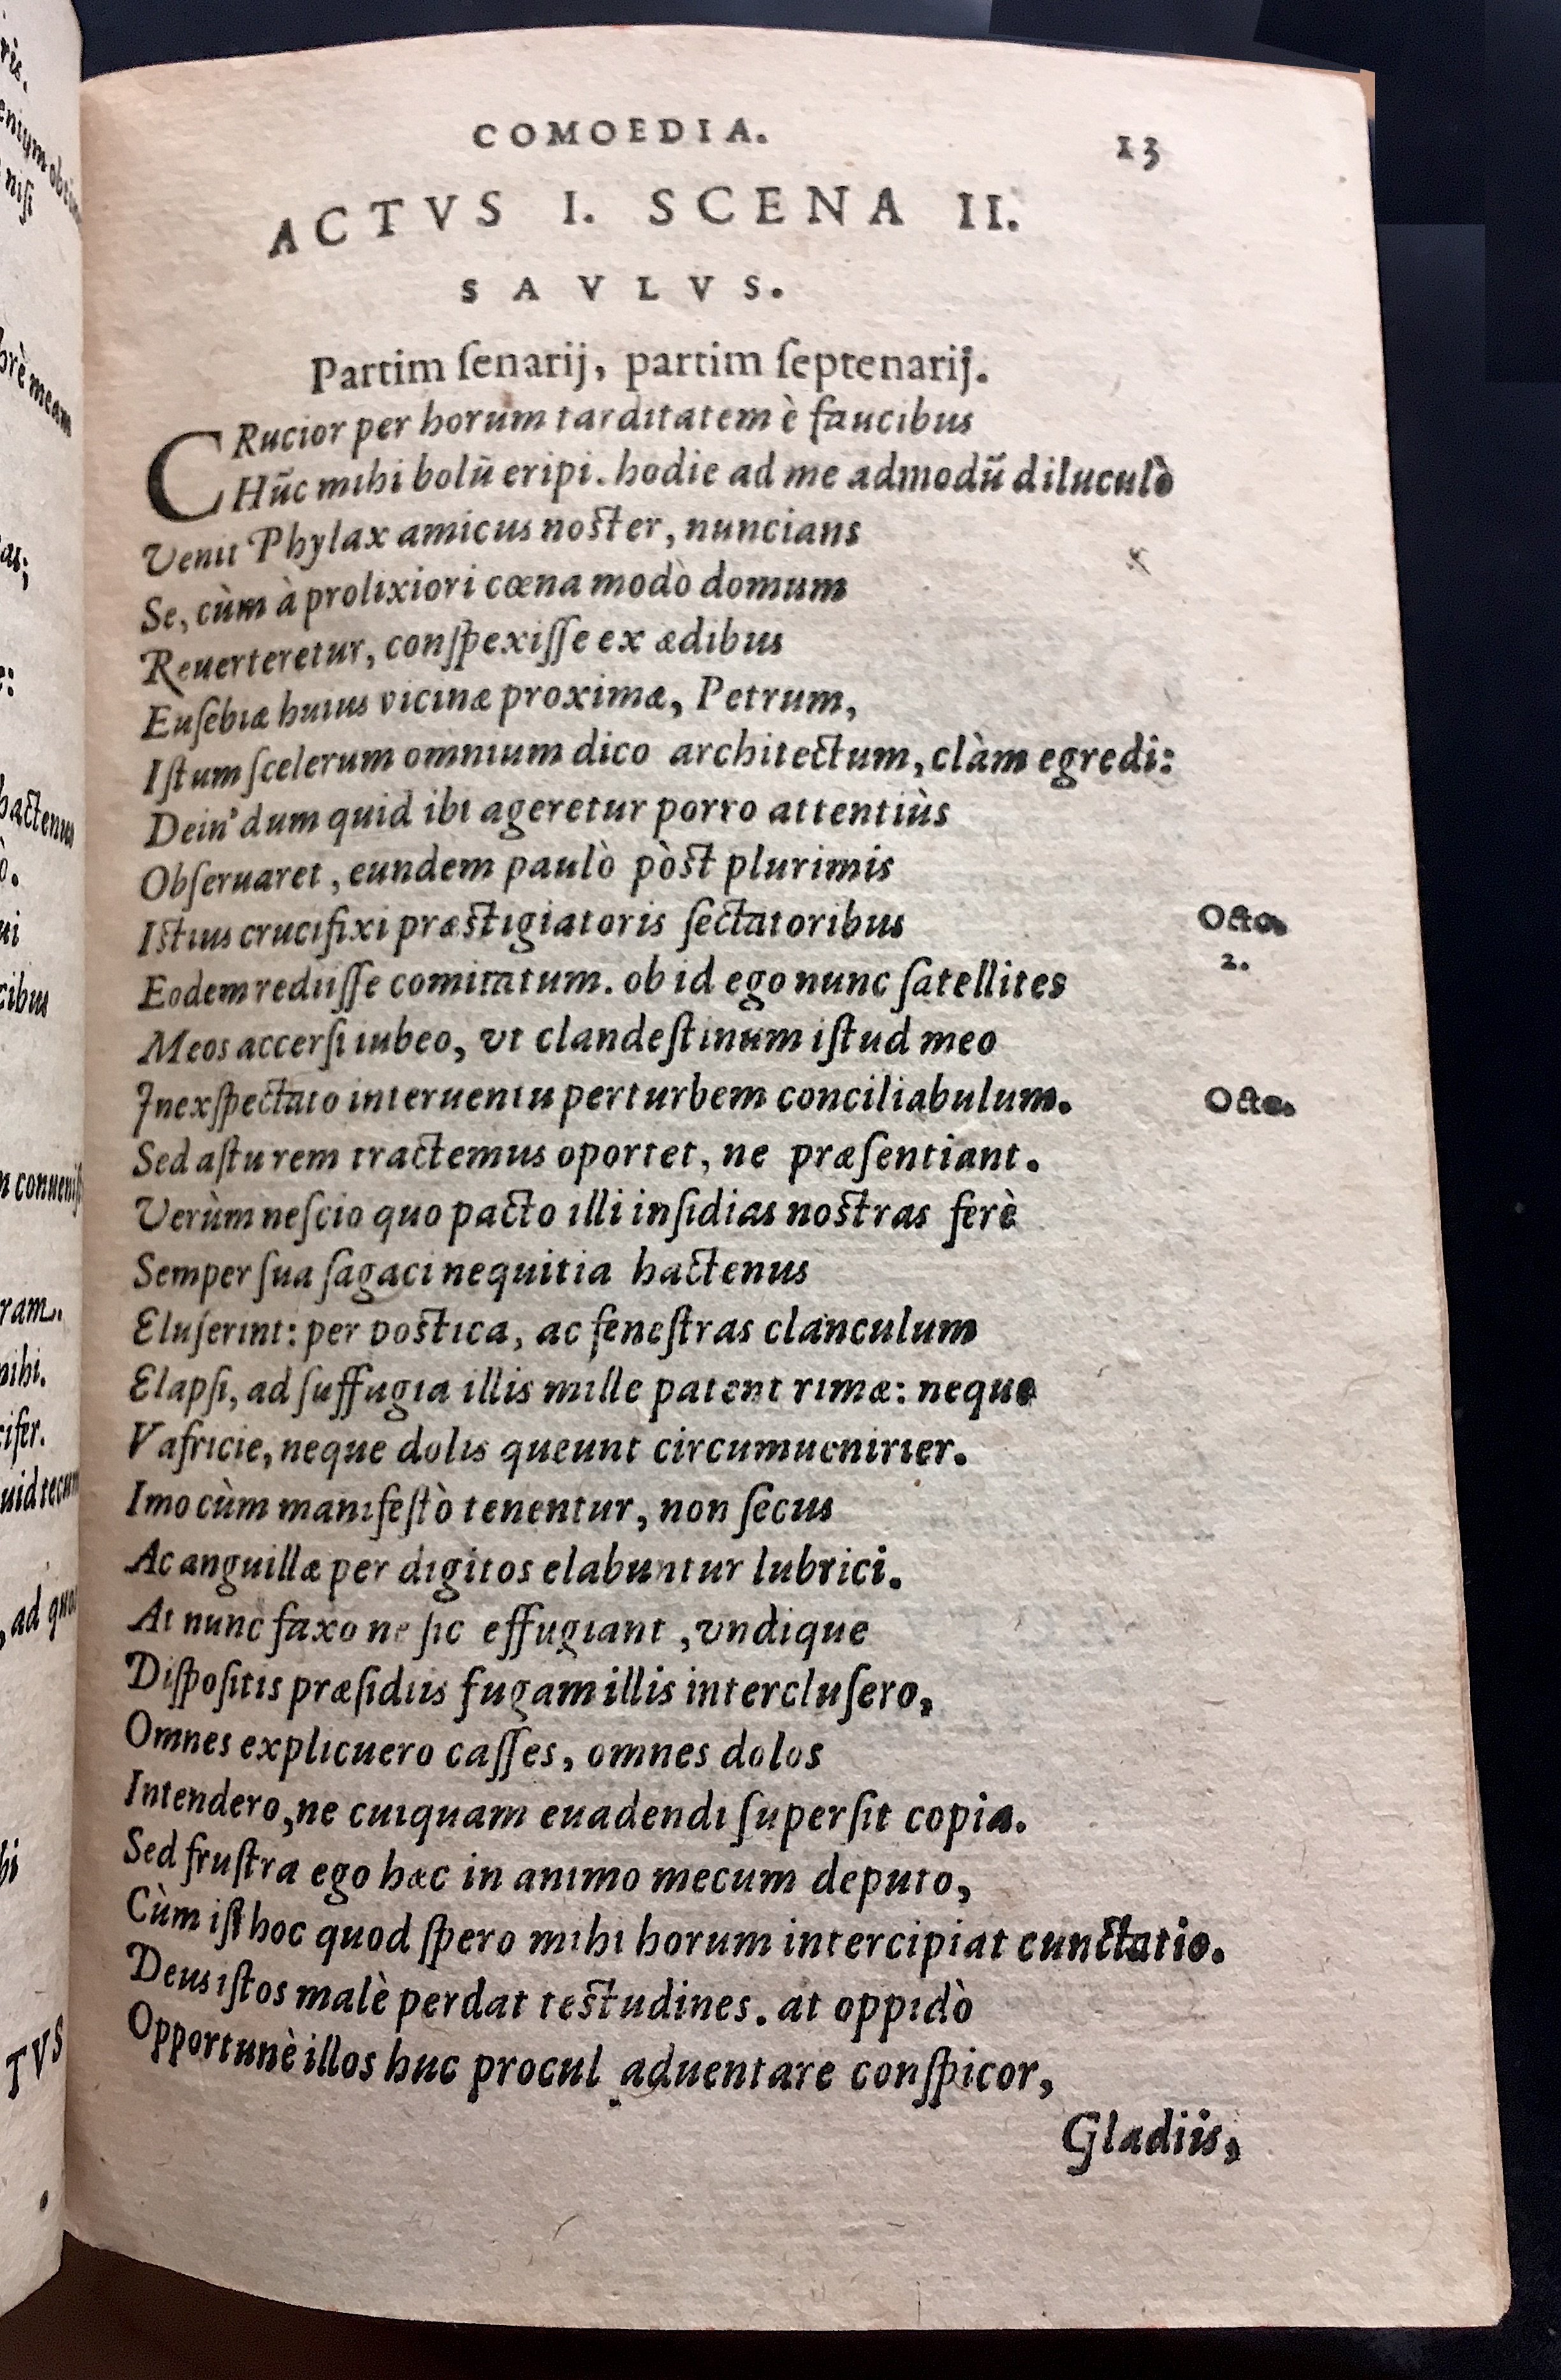 COMOEDIA. 13
ACTVS I. SCENA II.
SAVLVS.
Partim ſenarij, partim ſeptenarij.
CRucior per horum tarditatem è faucibus
Hũc mihi bolũ eripi. hodie ad me admodũ diluculò
Venit Phylax amicus noſter, nuncians
Se, cùm à prolixiori cœna modò domum
Reuerteretur, conſpexiſſe ex ædibus
Euſebiæ huius vicinæ proximæ, Petrum,
Iſtum ſcelerum omnium dico architectum, clàm egredi:
Dein' dum quid ibi ageretur porro attentiùs
Obſeruaret, eundem paulò pòſt plurimis
Iſtius crucifixi præſtigiatoris ſectatoribus
Octo.
2.
Eodem rediiſſe comitatum. ob id ego nunc ſatellites
Meos accerſi iubeo, vt clandeſtinum iſtud meo
Inexſpectato interuentu perturbem conciliabulum.
Octo.
Sed aſtu rem tractemus oportet, ne præſentiant.
Verùm neſcio quo pacto illi inſidias noſtras ferè
Semper ſua ſagaci nequitia hactenus
Eluſerint: per poſtica, ac feneſtras clanculum
Elapſi, ad ſuffugia illis mille patent rimæ: neque
Vafricie, neque dolis queunt circumuenirier.
Imo cùm manifeſtò tenentur, non ſecus
Ac anguillæ per digitos elabuntur lubrici.
At nunc faxo ne ſic effugiant, vndique
Diſpoſitis præſidiis fugam illis intercluſero,
Omnes explicuero caſſes, omnes dolos
Intendero, ne cuiquam euadendi ſuperſit copia.
Sed fruſtra ego hæc in animo mecum deputo,
Cùm iſthoc quod ſpero mihi horum intercipiat cunctatio.
Deus iſtos malè perdat teſtudines. at oppidò
Opportunè illos huc procul aduentare conſpicor,
Gladiis,